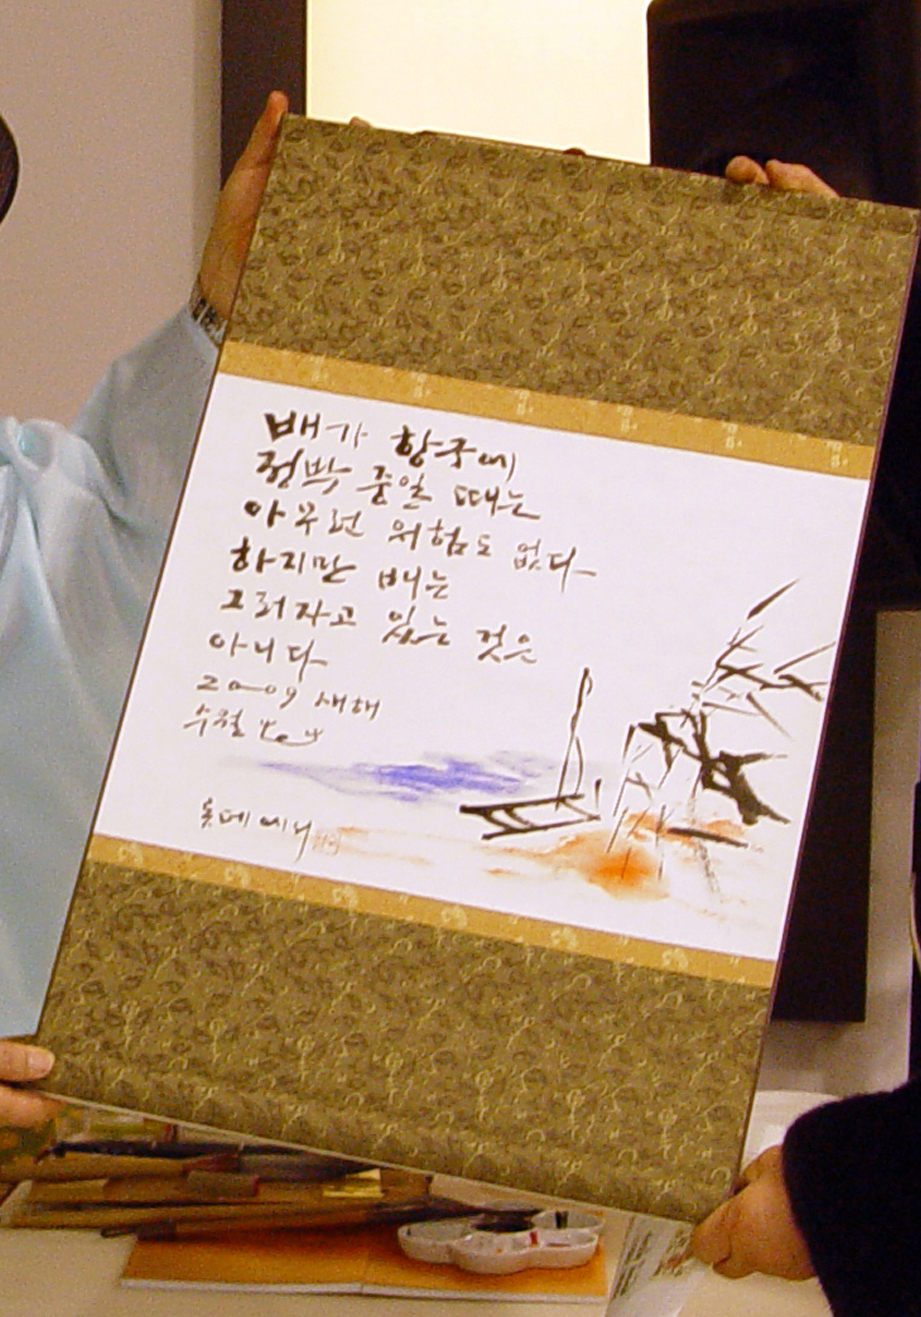 배가 항구에
정박 중일 때는
아무런 위험도 없다
하지만 배는
그러자고 있는 것은
아니다
2009 새해
수월
롯데에서